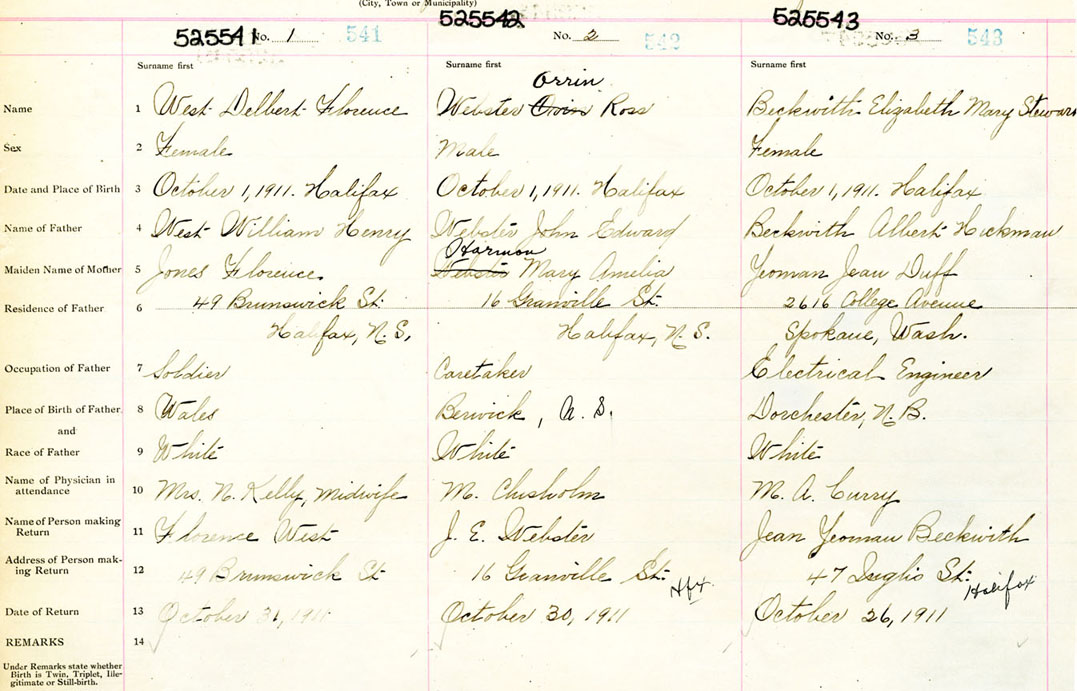 (City, Town or Municipality)
525541 No. 1 541
525542 No. 2 542
525543 No. 3 543
Surname first Surname first Surname first
Orrin
Name 1 West Delbert Florence Webster Orvin Ross Beckwith Elizabeth Mary Stewart
Sex 2 Female Male Female
Date and Place of Birth 3 October 1, 1911. Halifax October 1, 1911. Halifax October 1, 1911. Halifax
Name of Father 4 West William Henry Webster John Edward Beckwith Albert Hickman
Harmon
Maiden Name of Mother 5 Jones Florence Webster Mary Amelia Yeoman Jean Duff
Residence of Father 6 49 Brunswick St. 16 Granville St. 2616 College Avenue
Halifax, N.S. Halifax, N.S. Spokane, Wash.
Occupation of Father 7 Soldier Caretaker Electrical Engineer
Place of Birth of Father 8 Wales Berwick, N.S. Dorchester, N.B.
and
Race of Father 9 White White White
Name of Physician in
attendance 10 Mrs. N. Kelly, Midwife M. Chisholm M. A. Curry
Name of Person making
Return 11 Florence West J. E. Webster Jean Yeoman Beckwith
Address of Person mak-
ing Return 12 49 Brunswick St 16 Granville St. Hfx 47 Inglis St. Halifax
Date of Return 13 October 31, 1911 October 30, 1911 October 26, 1911
REMARKS 14
Under Remarks state whether
Birth is Twin, Triplet, Ille-
gitimate or Still-birth.